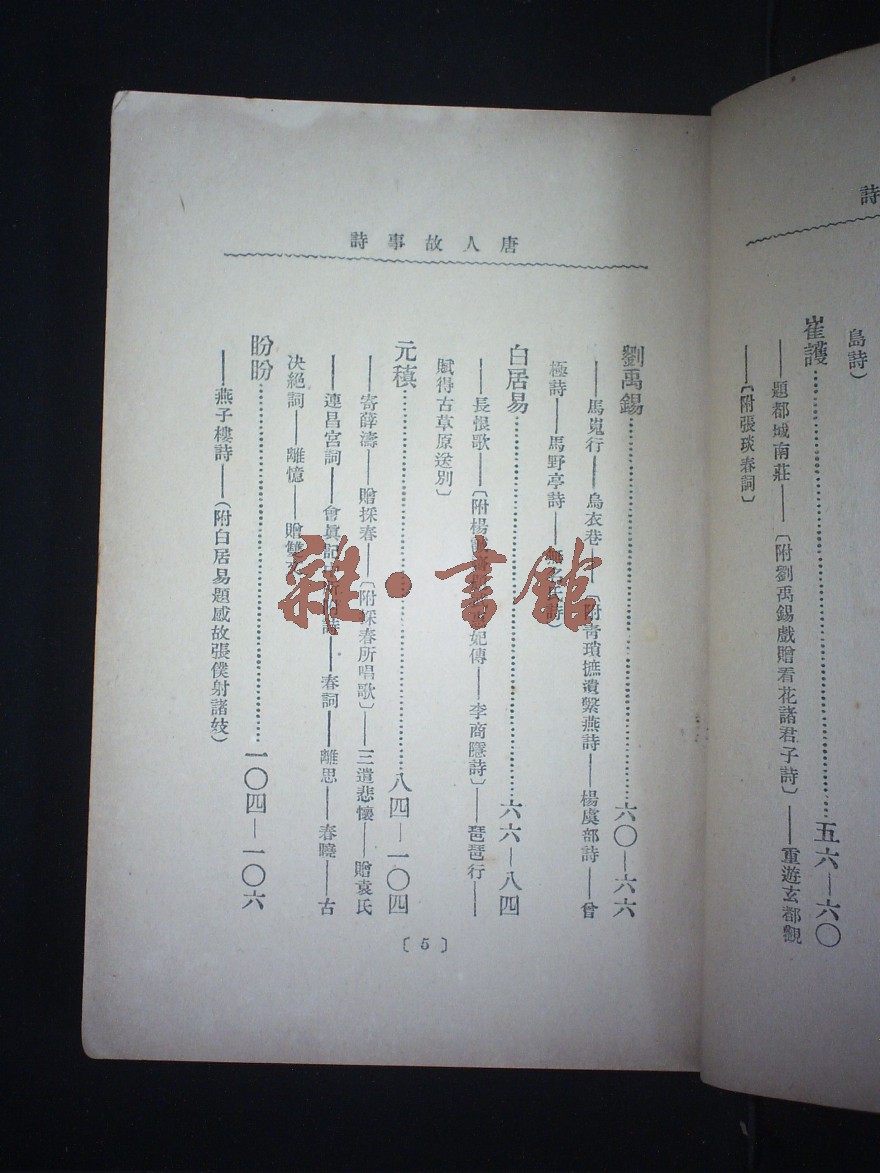 詩
島詩）
崔護……五六—六〇
——題都城南莊——〔附劉禹錫戲贈看花諸君子詩〕——重遊玄都觀
——〔附張琰春詞〕
唐人故事詩
劉禹錫……六〇—六六
——馬嵬行——烏衣巷——〔附青瑣摭遺繫燕詩——楊虞部詩——曾
極詩——馬野亭詩——詩〕
白居易……六六—八四
——長恨歌——〔附楊妃傳——李商隱詩〕——琵琶行——
賦得古草原送別〕
元稹……八四—一〇四
——寄薛濤——贈採春——〔附採春所唱歌〕——三遣悲懷——贈袁氏
——連昌宮詞——會眞記詩——春詞——離思——春曉——古
决絕詞——離憶——贈雙文
盼盼……一〇四—一〇六
——燕子樓詩——（附白居易題感故張僕射諸妓）
〔5〕
雜·書館